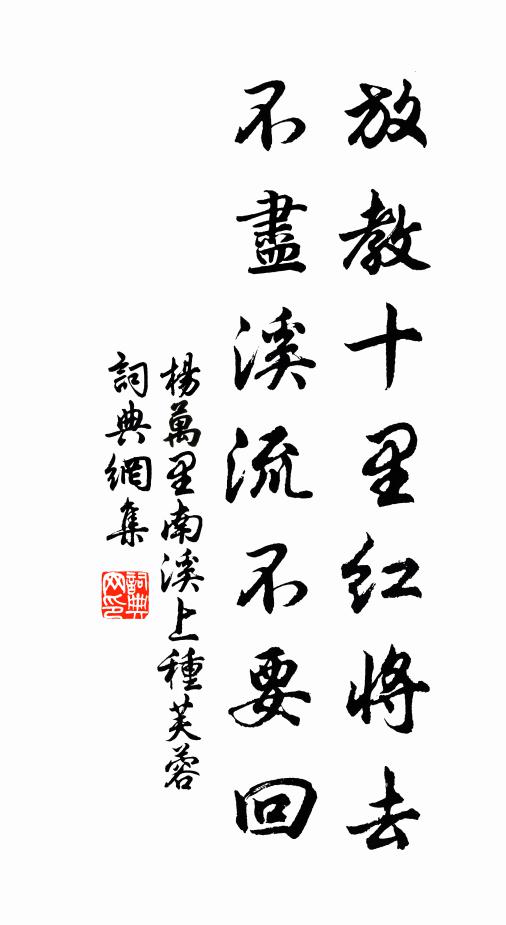 放教十里紅將去
不盡溪流不要回
楊萬里南溪上種芙蓉
詞典網集
詞典
网印